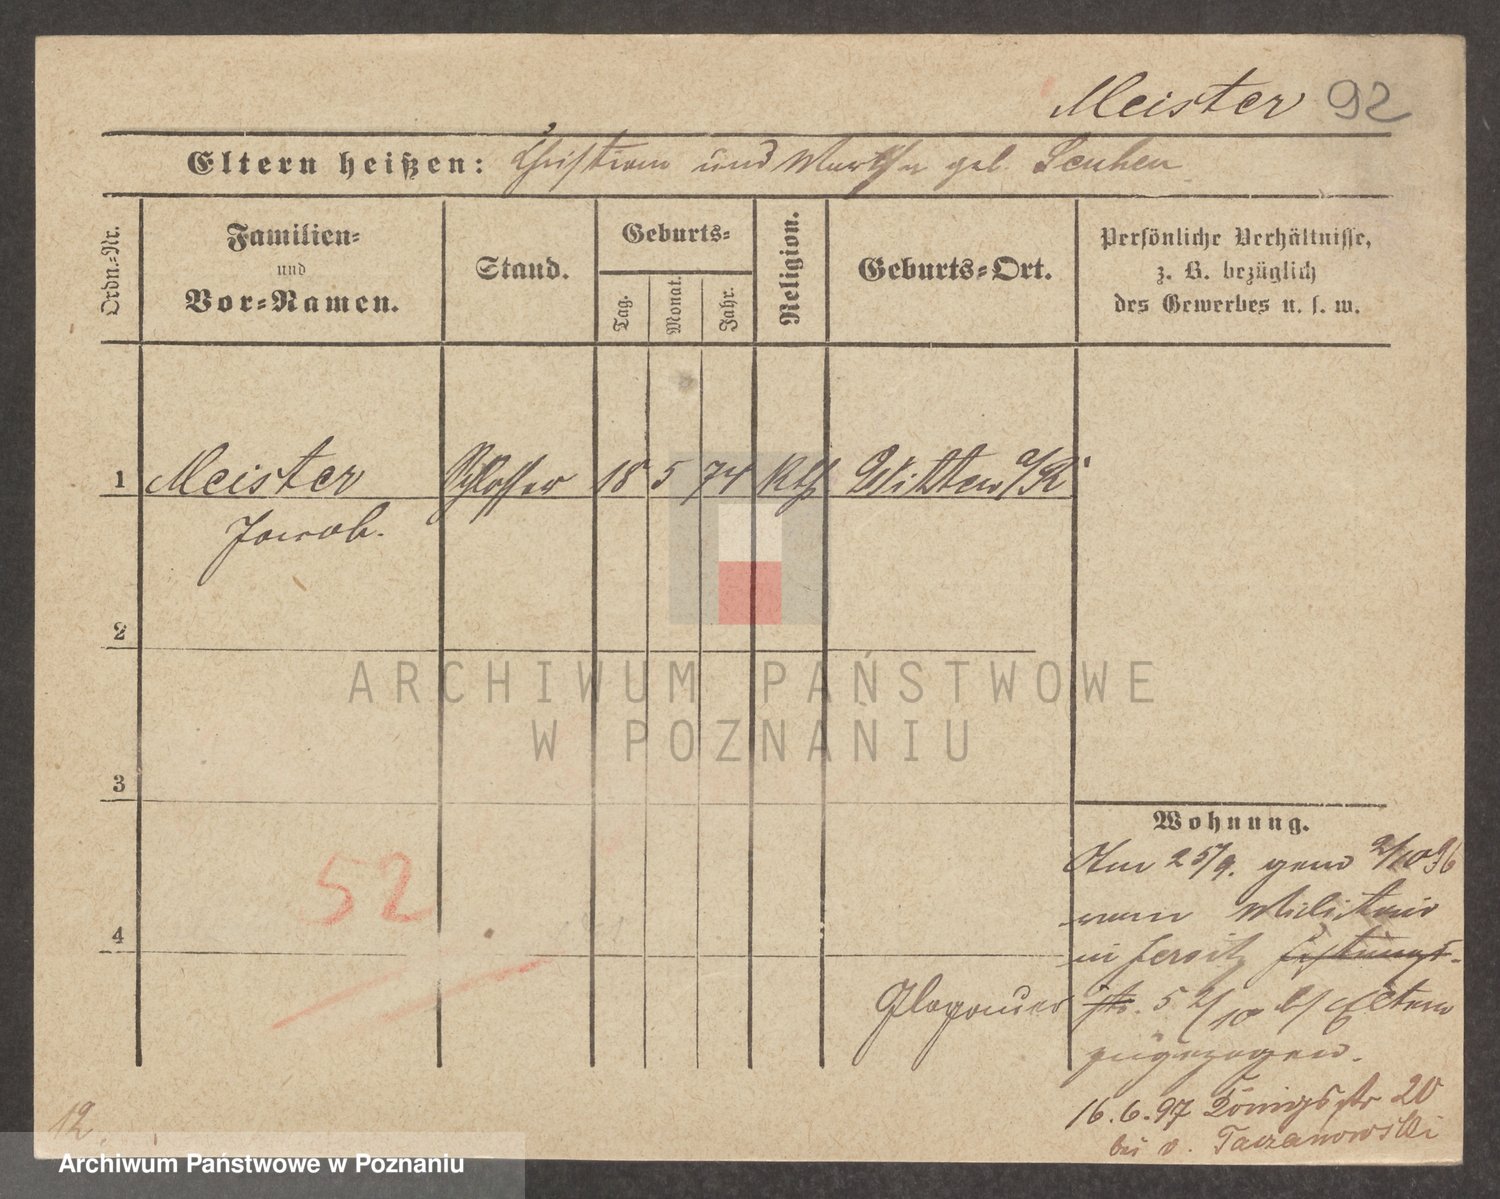 Meister 92
Eltern heißen: Christian und Martha geb.
Ordn.-Nr.
Familien-
und
Vor-Namen.
Stand.
Geburts-
Tag.
Monat.
Jahr.
Religion.
Geburts-Ort.
Persönliche Verhältnisse,
z. B. bezüglich
des Gewerbes u. s. w.
1 Meister Schlosser 18 5 74 Kth Witten a/R
Jacob.
2
ARCHIWUM PAŃSTWOWE
W POZNANIU
3
Wohnung.
Am 25/9. gem 2/10 96
vom Militair
in Jersitz Festungs-
Glogauer str. 5 2/10 b/ Eltern
zugezogen.
16.6.97 Königstr 20
bei v. Taczanowski
52
4
12
Archiwum Państwowe w Poznaniu